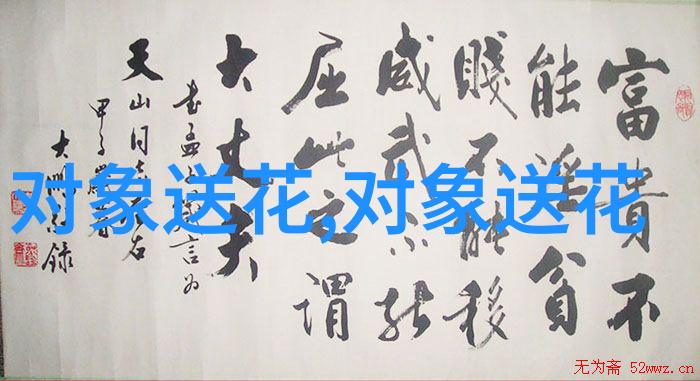 富貴不
能淫貧
賤不能移
威武不能
屈此之謂
大丈夫
书孟子言为
天山同志左右
甲子
对象送花,对象送花
无为斋 52wwz.cn